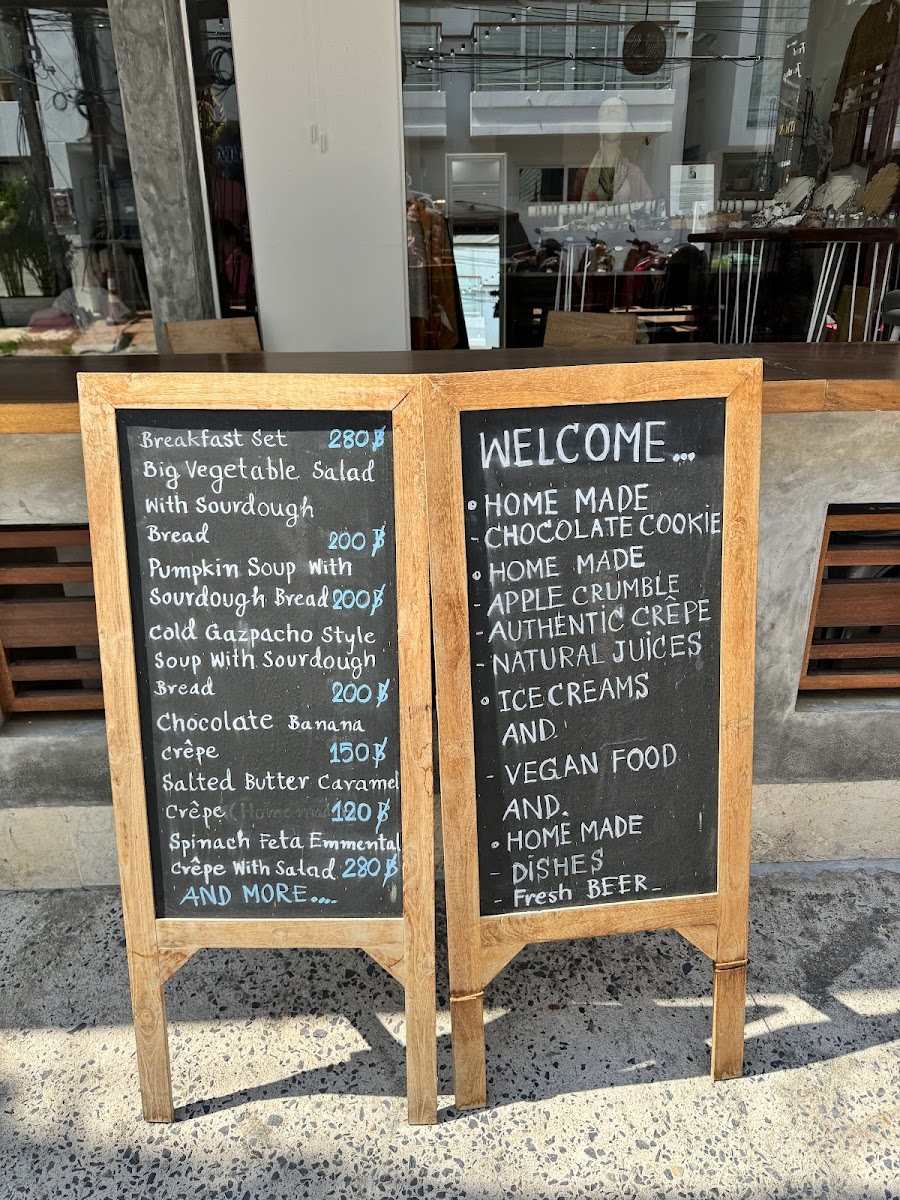 Breakfast Set 280฿
Big Vegetable Salad
With Sourdough
Bread 200฿
Pumpkin Soup With
Sourdough Bread 200฿
Cold Gazpacho Style
Soup With Sourdough
Bread 200฿
Chocolate Banana
crêpe 150฿
Salted Butter Caramel
Crêpe (Home made) 120฿
Spinach Feta Emmental
crêpe With Salad 280฿
AND MORE....
WELCOME...
• HOME MADE
- CHOCOLATE COOKIE
• HOME MADE
- APPLE CRUMBLE
- AUTHENTIC CRÊPE
- NATURAL JUICES
• ICE CREAMS
AND.
- VEGAN FOOD
AND.
• HOME MADE
- DISHES
- Fresh BEER_